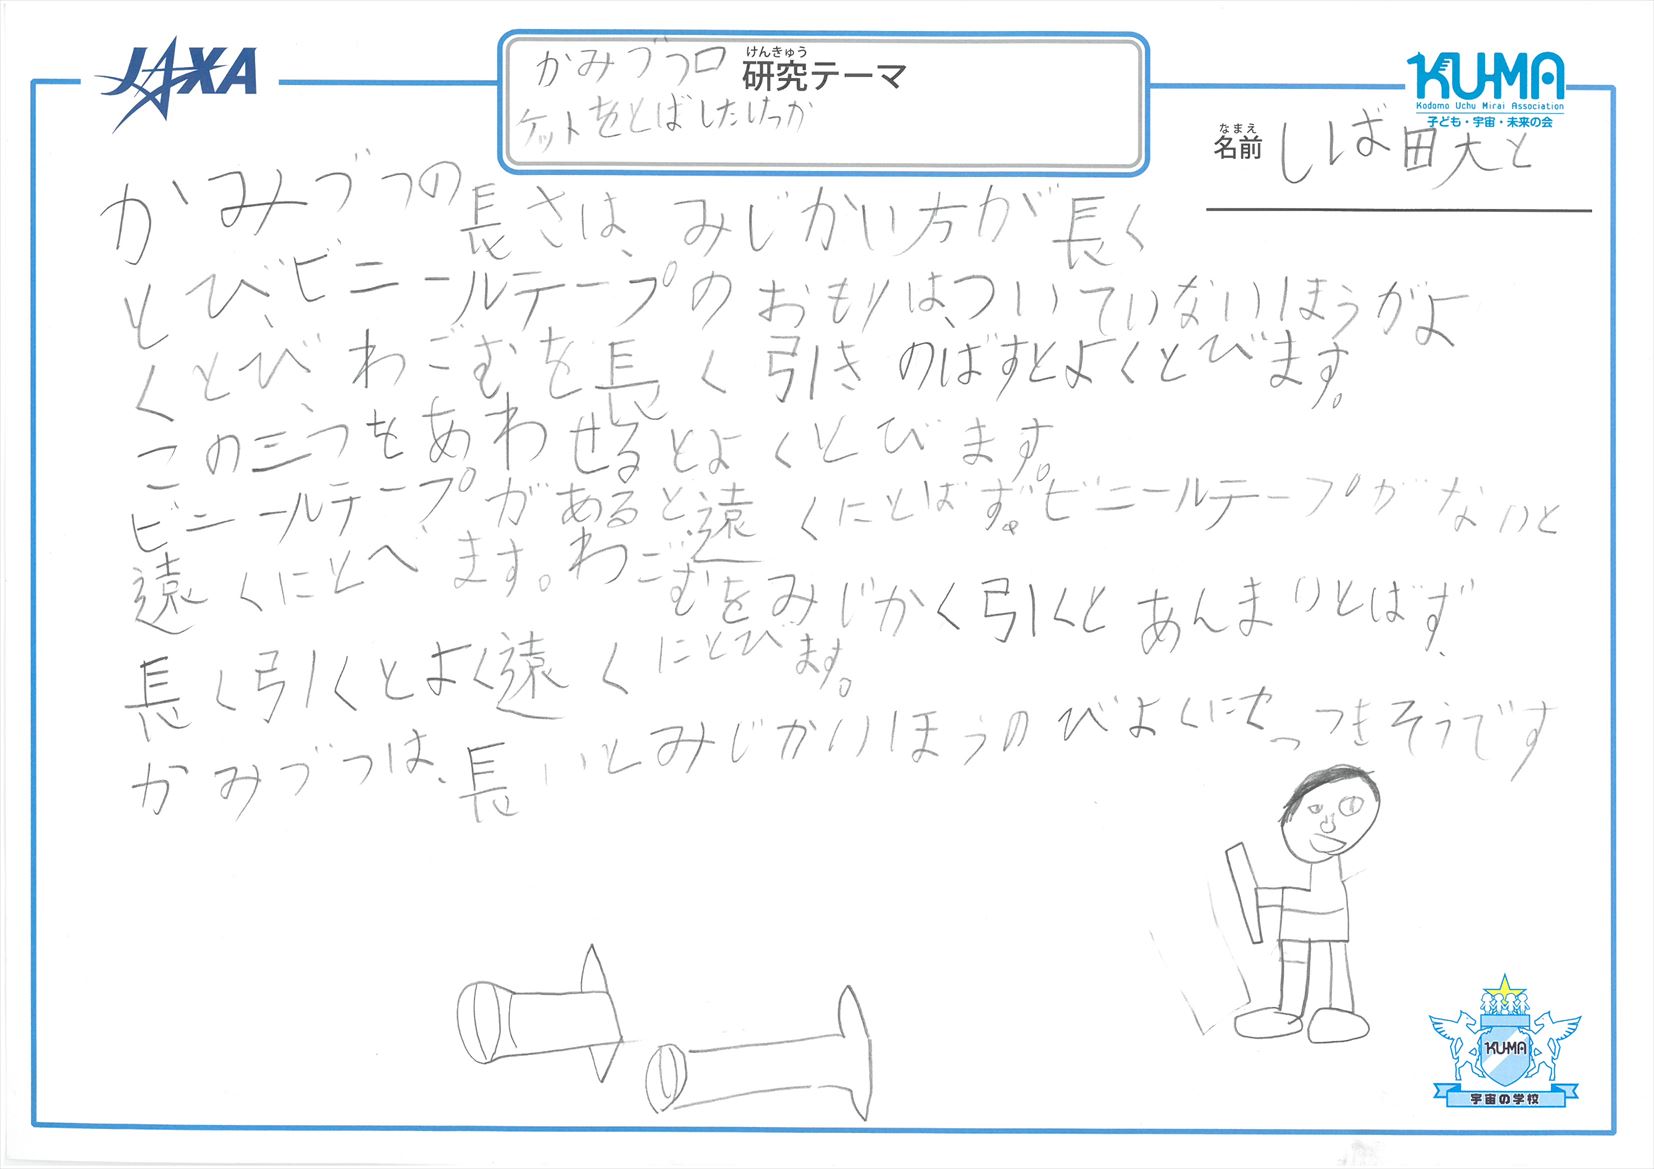 JAXA
かみづつロ
けんきゅう
研究テーマ
ケットをとばしたけっか
KU-MA
Kodomo Uchu Mirai Association
子ども・宇宙・未来の会
なまえ
名前 しば田大と
かみづつの長さは、みじかい方が長く
とび、ビニールテープのおもりは、ついていないほうがよ
くとび、わごむを長く引きのばすとよくとびます。
この三つをあわせるとよくとびます。
ビニールテープがあると遠くにとばず。ビニールテープがないと
遠くにとべます。わごむをみじかく引くとあんまりとばず、
長く引くとよく遠くにとびます。
かみづつは、長いとみじかいほうの びよくに つきそうです
KU-MA
宇宙の学校